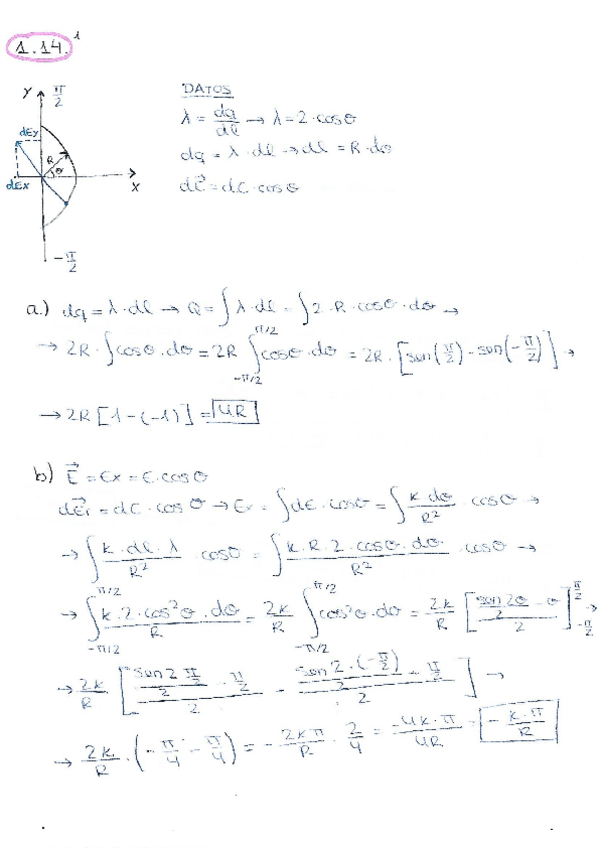 1.14.¹
DATOS
y π/2
dEy
R
θ
dEx
x
-π/2
λ = dq/dl → λ = 2·cosθ
dq = λ·dl → dl = R·dθ
dE⃗ = dE·cosθ
a.) dq = λ·dl → Q = ∫λ·dl = ∫2·R·cosθ·dθ →
→ 2R·∫cosθ·dθ = 2R ∫_{-π/2}^{π/2} cosθ·dθ = 2R·[sen(π/2) - sen(-π/2)] →
→ 2R[1-(-1)] = 4R
b) E⃗ = Ex = E·cosθ
dE⃗x = dE·cosθ → Ex = ∫dE·cosθ = ∫ (K dθ)/R² ·cosθ →
→ ∫ (K·dl·λ)/R² ·cosθ = ∫ (K·R·2·cosθ·dθ)/R² ·cosθ →
→ ∫_{-π/2}^{π/2} (K·2·cos²θ·dθ)/R = 2K/R ∫_{-π/2}^{π/2} cos²θ·dθ = 2K/R [((sen2θ)/2 - θ)/2]_{-π/2}^{π/2} →
→ 2K/R [((sen2 π/2)/2 - π/2)/2 - ((sen2·(-π/2))/2 - π/2)/2] →
→ 2K/R·(-π/4 - π/4) = -2Kπ/R · 2/4 = -4K·π/4R = -K·π/R